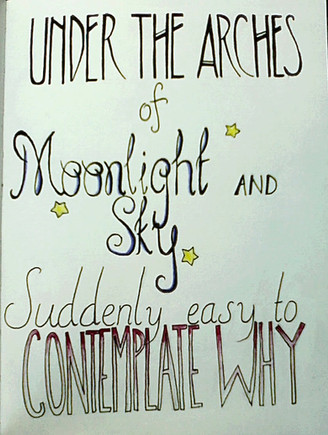 UNDER THE ARCHES
of
Moonlight AND
Sky
Suddenly easy to
CONTEMPLATE WHY